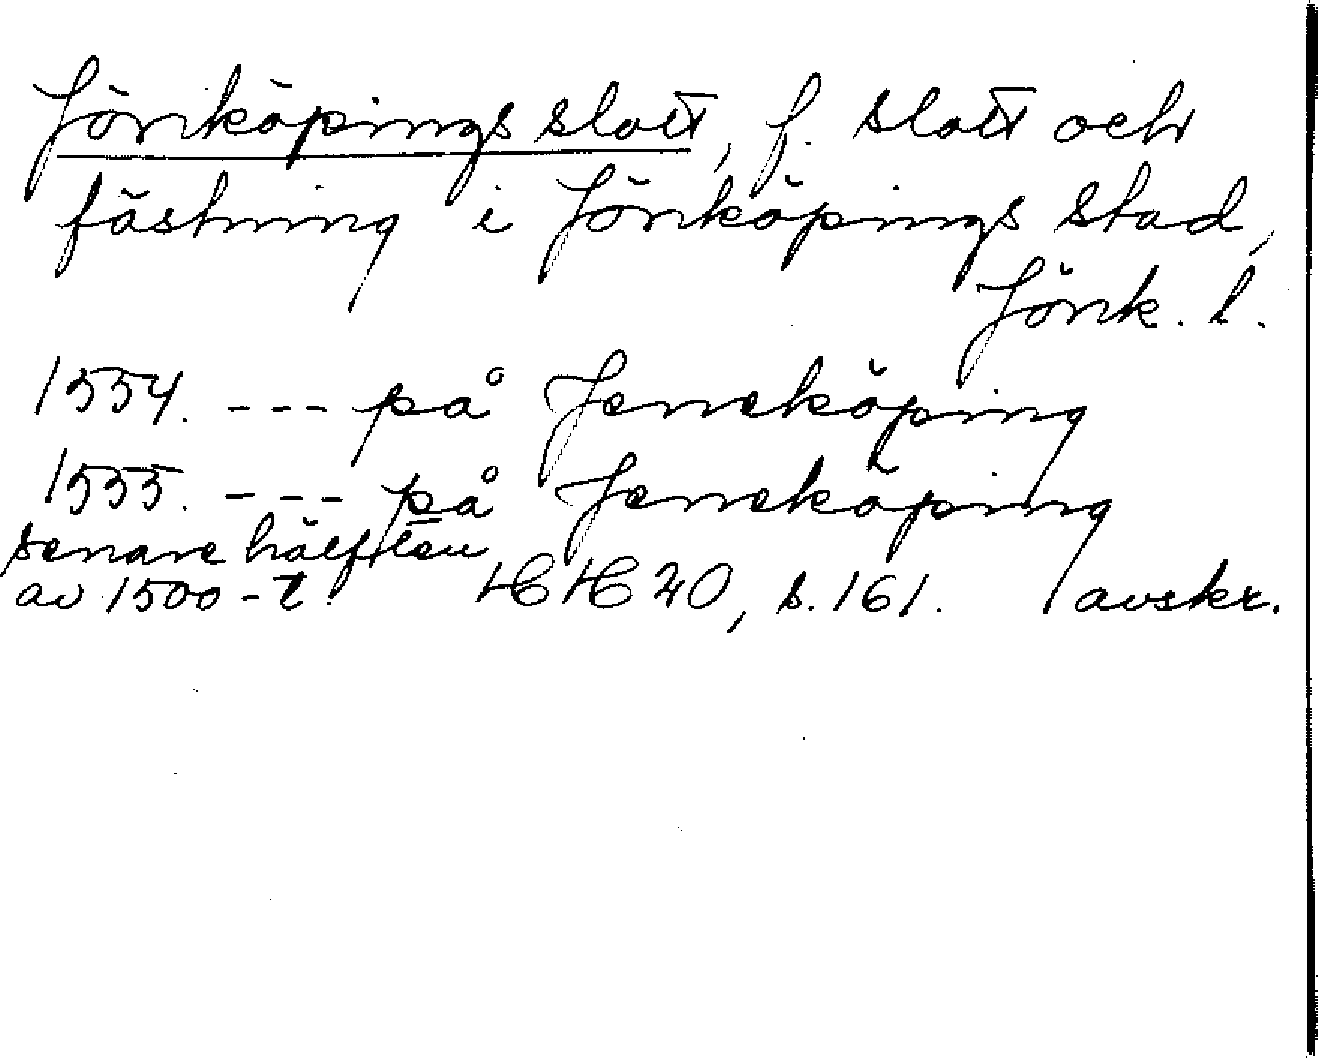 Jönköpings slott, f. slott och
fästning i Jönköpings stad,
Jönk. l.
1554. --- på Jeneköping
1555. --- på Jeneköping
senare hälften
av 1500-t. HH 20, s. 161. avskr.